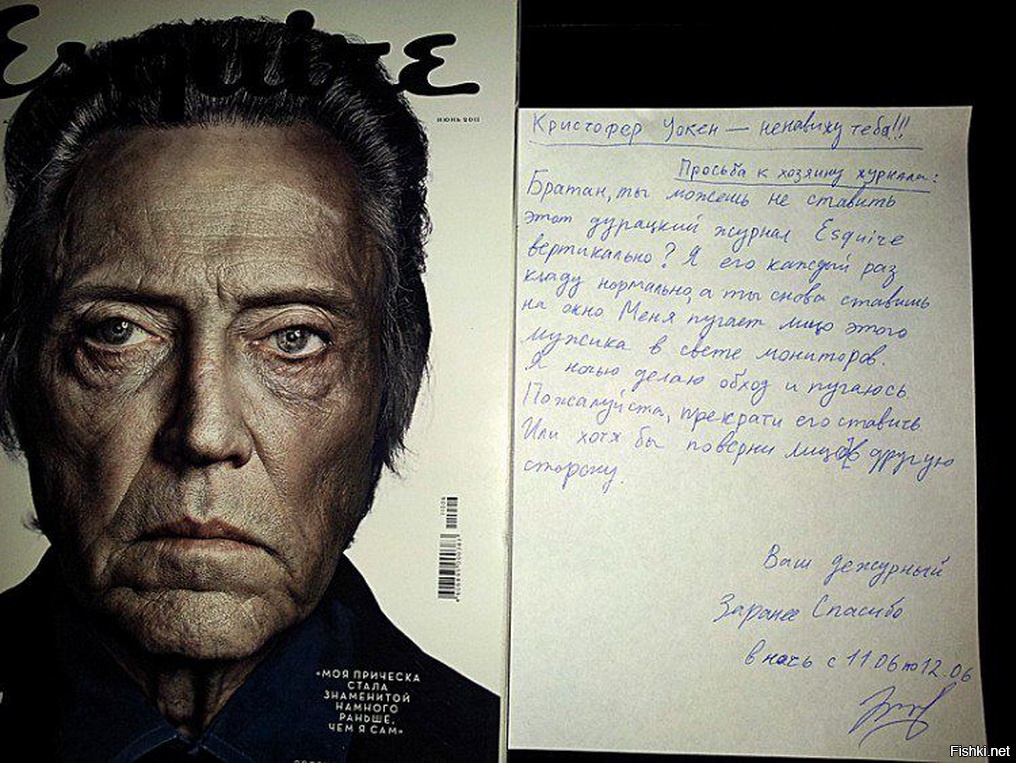 Esquire
ИЮНЬ 2011
«МОЯ ПРИЧЕСКА
СТАЛА
ЗНАМЕНИТОЙ
НАМНОГО
РАНЬШЕ,
ЧЕМ Я САМ»
Кристофер Уокен — ненавижу тебя!!!
Просьба к хозяину журнала:
Братан, ты можешь не ставить
этот дурацкий журнал Esquire
вертикально? Я его каждый раз
кладу нормально, а ты снова ставишь
на окно. Меня пугает лицо этого
мужика в свете мониторов.
Я ночью делаю обход и пугаюсь.
Пожалуйста, прекрати его ставить
Или хотя бы поверни лицо в другую
сторону.
Ваш дежурный
Заранее Спасибо
в ночь с 11.06 по 12.06
Fishki.net